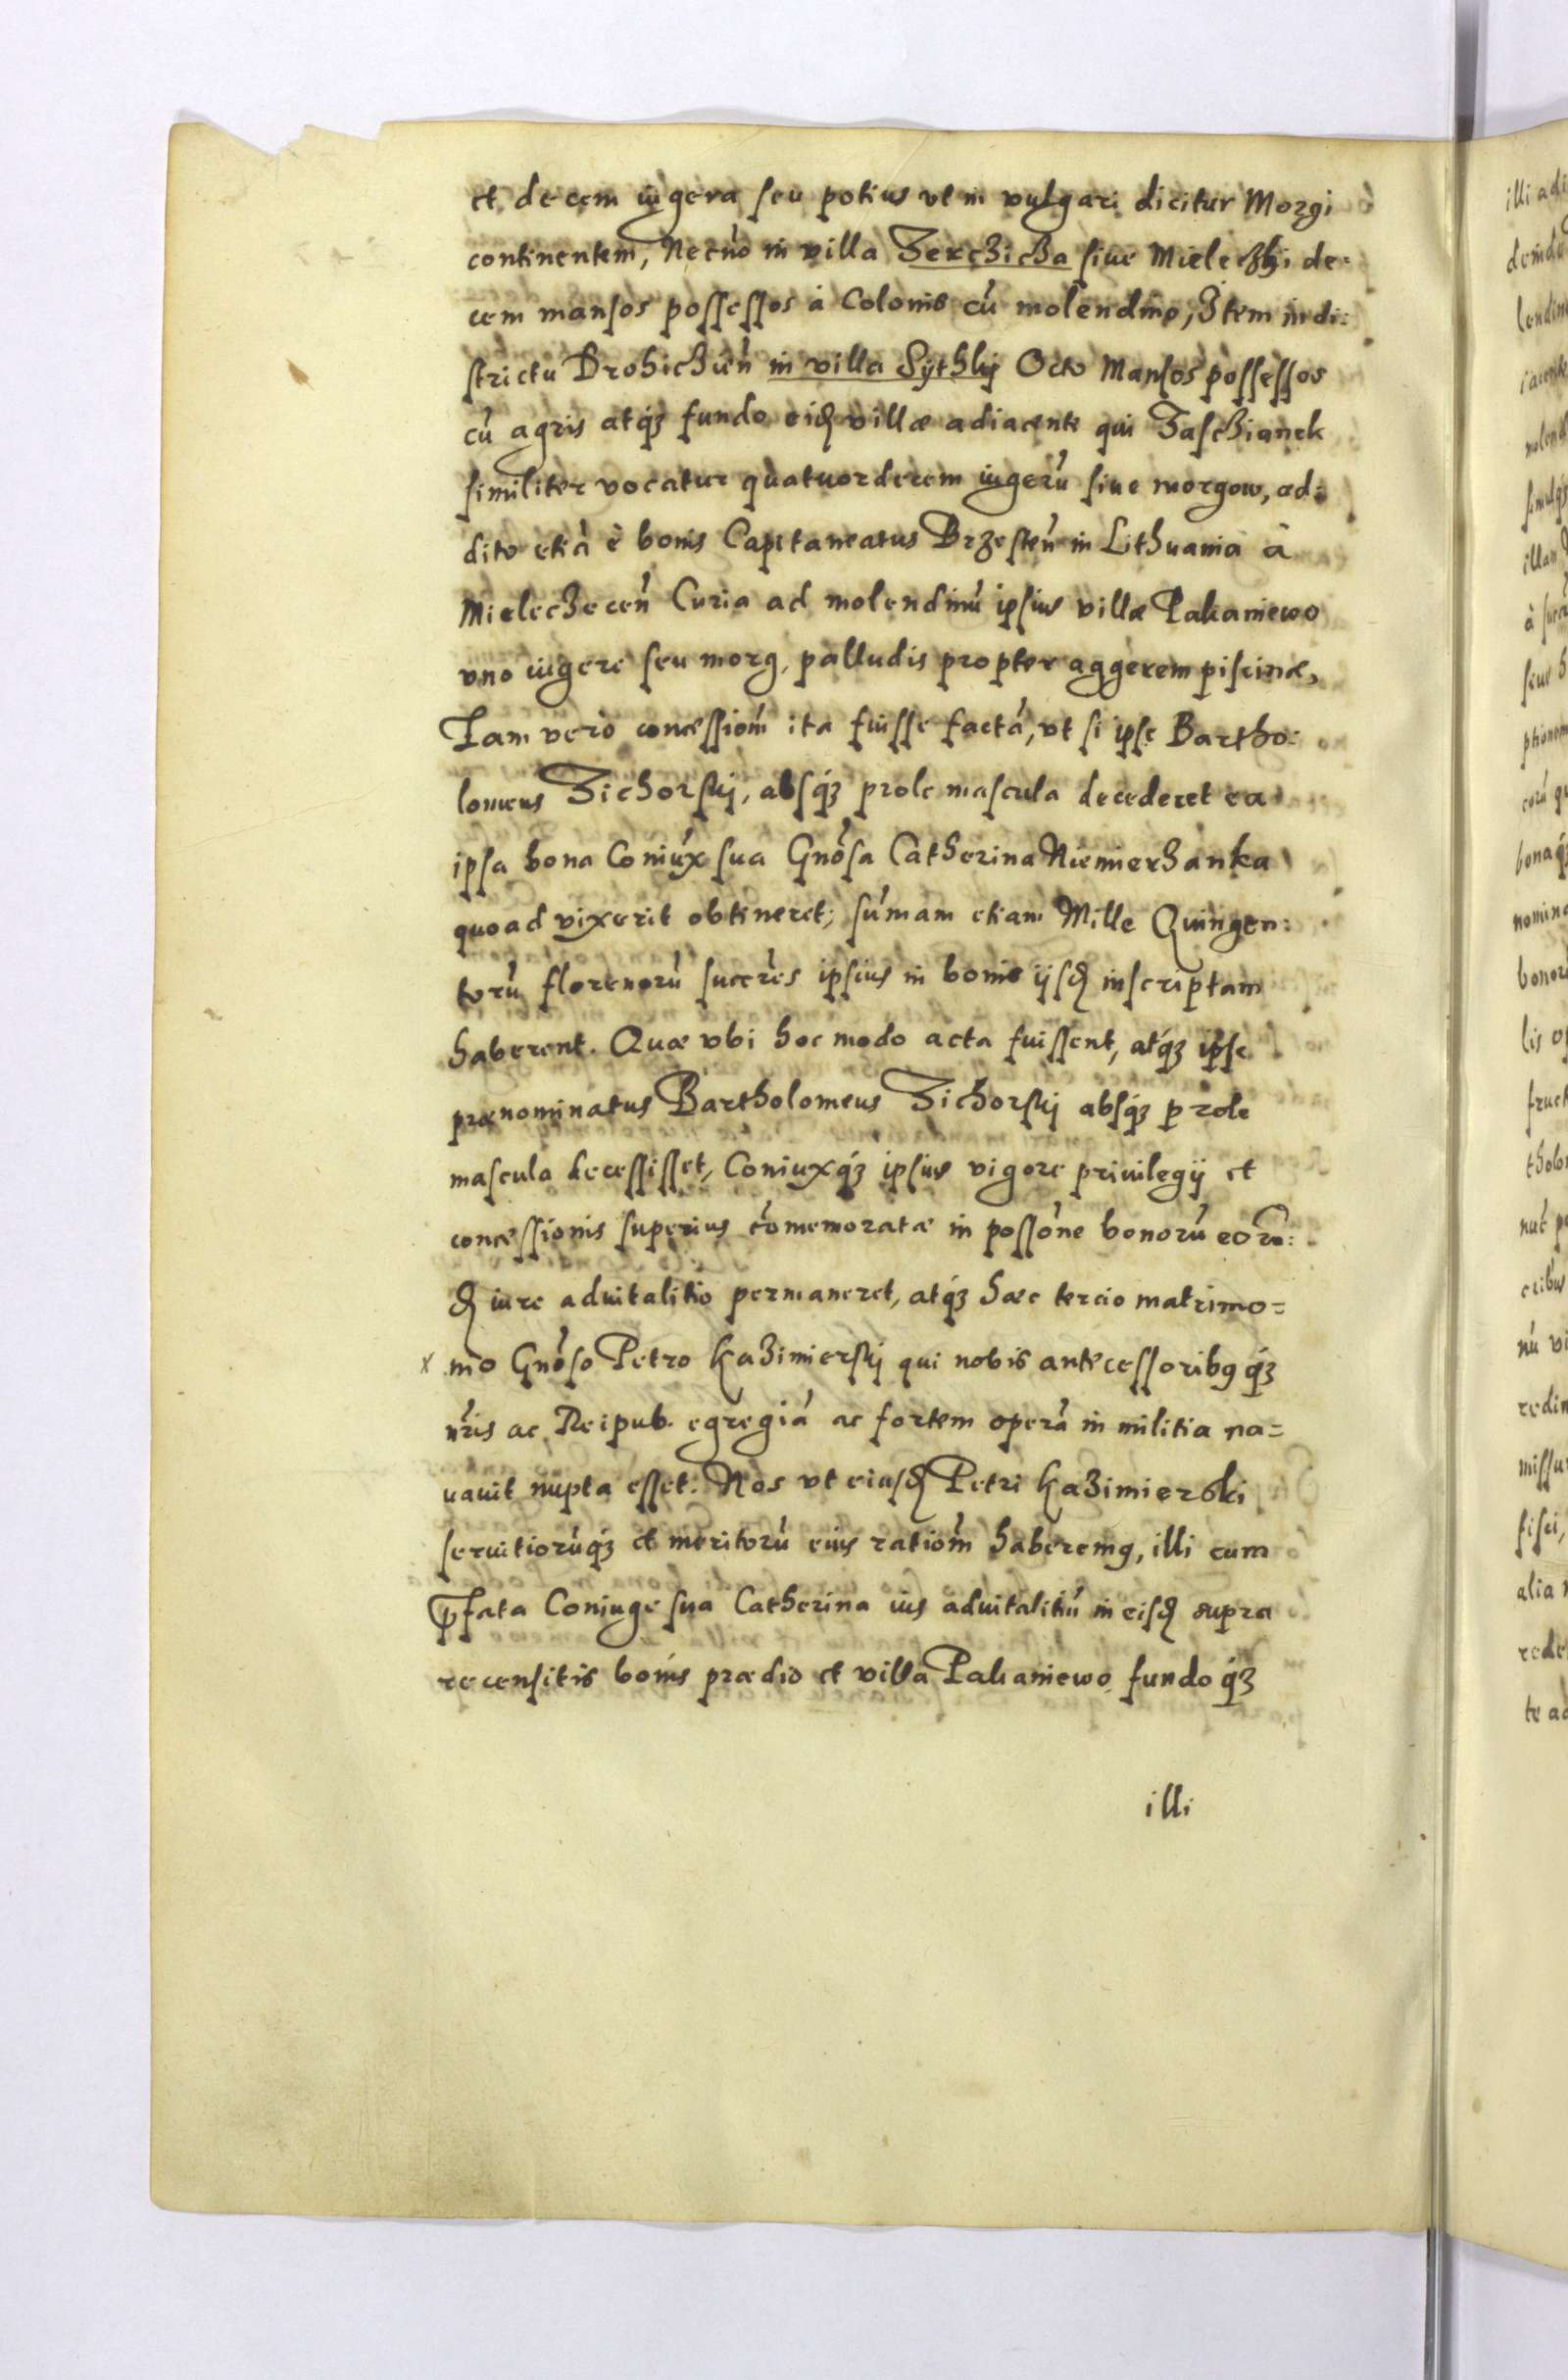 et decem iugera seu potius vt in vulgari dicitur Morgi
continentem, Necnō in villa Terchicha siue Mielechi de=
cem mansos possessos à Colonis cū molendino, Item in di:
strictu Drohichien̄ in villa Sythky Octo Mansos possessos
cū agris atq́ fundo eid villæ adiacente qui Taschianek
similiter vocatur quatuordecem iugerū siue morgow, ad:
dito etiā è bonis Capitaneatus Brzesten̄ in Lithuania à
Mielechecen̄ Curia ad molendinū ipsius villæ Pakaniewo
vno iugere seu morg, palludis propter aggerem piscinæ,
Iam vero concessiom̄ ita fuisse factā, vt si ipse Bartho:
lomeus Zichorskj, absq́ prole mascula decederet ea
ipsa bona Coniux sua Gnōsa Catherina Niemierzanka
quoad vixerit obtineret; sūmam etiam Mille Quingen:
torū florenorū succ̄res ipsius in bonis ijsd inscriptam
haberent. Quæ vbi hoc modo acta fuissent, atq́ ipse
prænominatus Bartholomeus Zichorskj absq́ prole
mascula decessisset, Coniuxq́ ipsius vigore priuilegij et
concessionis superius cōmemoratæ in possōne bonorū eorū:
d iure aduitalitio permaneret, atq́ hæc tercio matrimo=
x nio Gnōso Petro Kazimierskj qui nobis antecessoribq q́
nr̄is ac Reipub. egregiā ac fortem operā in militia na=
uauit nupta esset: Nos vt eiusd Petri Kazimierski
seruitiorūq́ et meritorū eius ratiom̄ haberemq, illi cum
p̄fata Coniuge sua Catherina ius aduitalitiū in eisd supra
recensitis bonis prædio et villa Pakaniewo fundo q́
illi